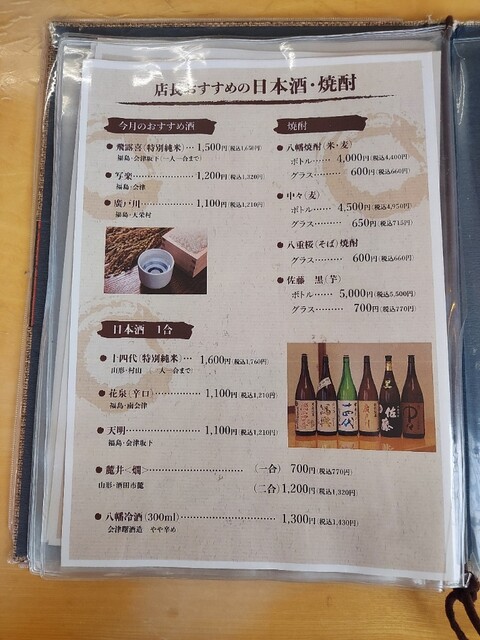 店長おすすめの日本酒・焼酎
今月のおすすめ酒
飛露喜(特別純米)… 1,500円(税込1,650円)
福島・会津坂下(一人一合まで)
写楽………………… 1,200円(税込1,320円)
福島・会津
廣戸川……………… 1,100円(税込1,210円)
福島・大栄村
日本酒 1合
十四代(特別純米)… 1,600円(税込1,760円)
山形・村山 (一人一合まで)
花泉(辛口)………… 1,100円(税込1,210円)
福島・南会津
天明………………… 1,100円(税込1,210円)
福島・会津坂下
麓井<燗>…………………(一合) 700円(税込770円)
山形・酒田市麓 (二合)1,200円(税込1,320円)
八幡冷酒(300ml)………………… 1,300円(税込1,430円)
会津曙酒造 やや辛め
焼酎
八幡焼酎(米・麦)
ボトル…… 4,000円(税込4,400円)
グラス………… 600円(税込660円)
中々(麦)
ボトル…… 4,500円(税込4,950円)
グラス………… 650円(税込715円)
八重桜(そば)焼酎
グラス………… 600円(税込660円)
佐藤 黒(芋)
ボトル…… 5,000円(税込5,500円)
グラス………… 700円(税込770円)
十四代
佐藤